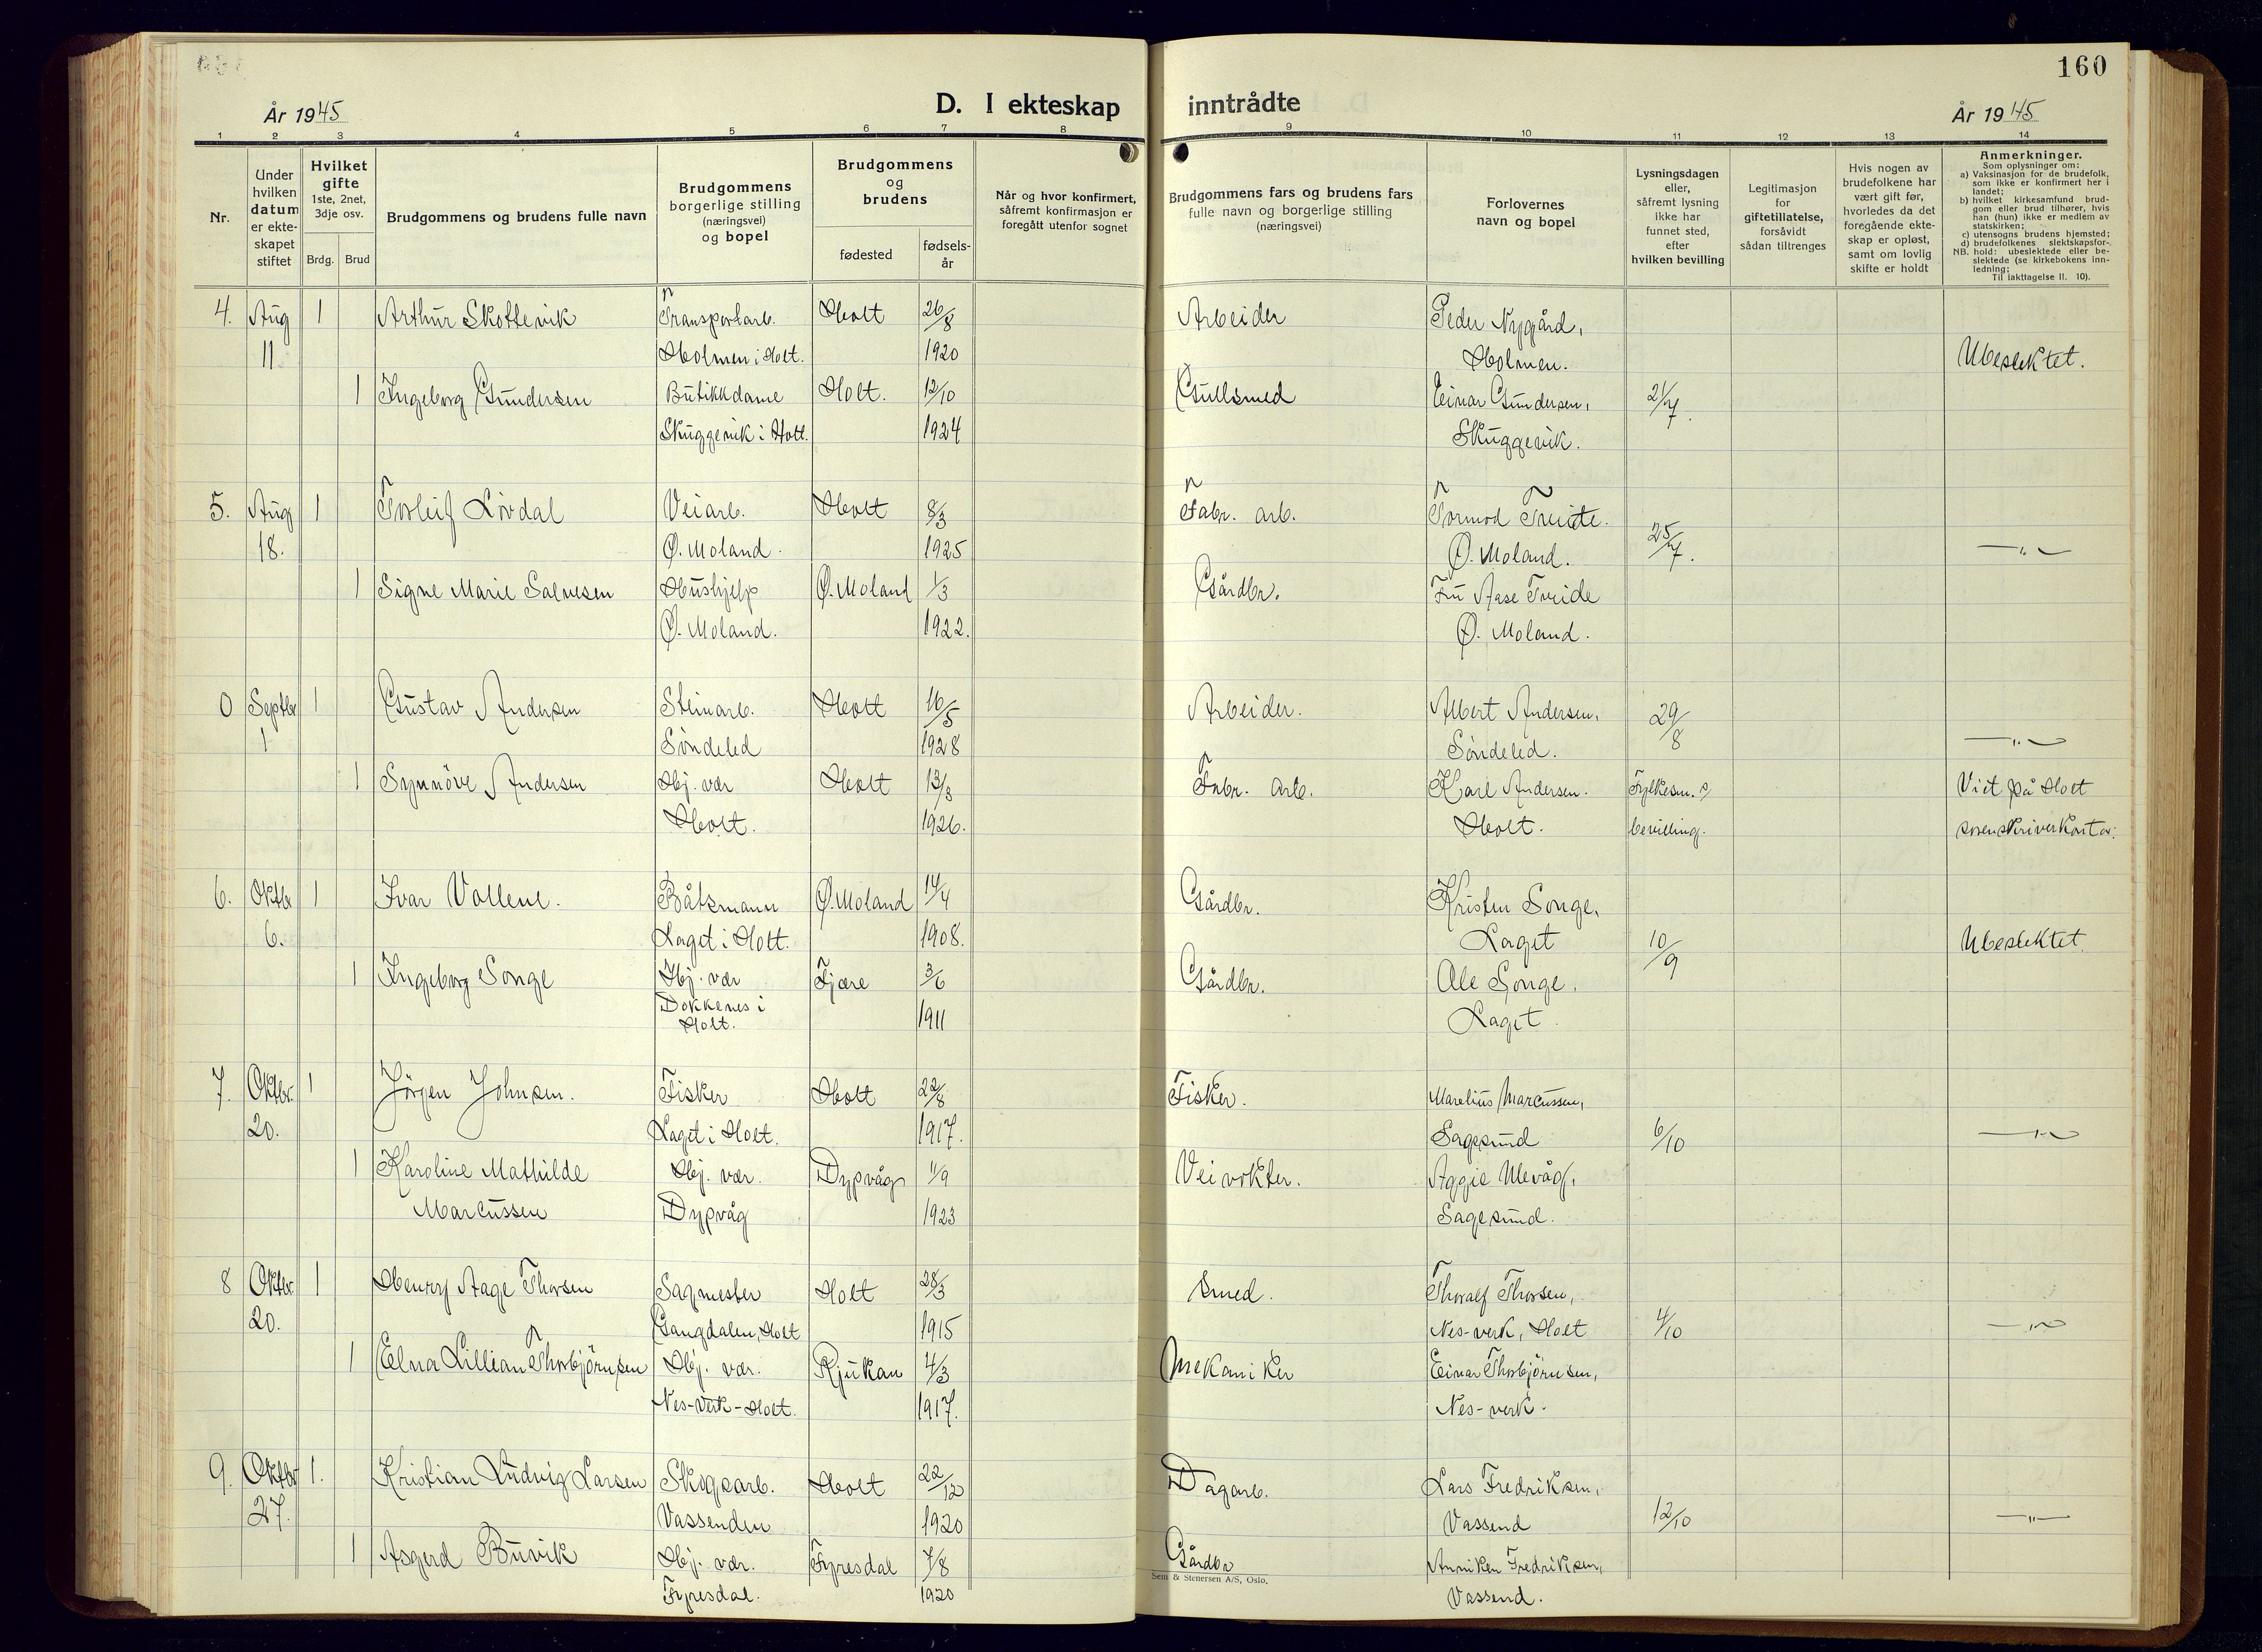 160
År 1945
D. I ekteskap inntrådte
År 1945
1 2 3 4 5 6 7 8 9 10 11 12 13 14
Nr.
Under
hvilken
datum
er ekte-
skapet
stiftet
Hvilket
gifte
1ste, 2net,
3dje osv.
Brdg. Brud
Brudgommens og brudens fulle navn
Brudgommens
borgerlige stilling
(næringsvei)
og bopel
Brudgommens
og
brudens
fødested
fødsels-
år
Når og hvor konfirmert,
såfremt konfirmasjon er
foregått utenfor sognet
Brudgommens fars og brudens fars
fulle navn og borgerlige stilling
(næringsvei)
Forlovernes
navn og bopel
Lysningsdagen
eller,
såfremt lysning
ikke har
funnet sted,
efter
hvilken bevilling
Legitimasjon
for
giftetillatelse,
forsåvidt
sådan tiltrenges
Hvis nogen av
brudefolkene har
vært gift før,
hvorledes da det
foregående ekte-
skap er opløst,
samt om lovlig
skifte er holdt
Anmerkninger.
Som oplysninger om:
a) Vaksinasjon for de brudefolk,
som ikke er konfirmert her i
landet;
b) hvilket kirkesamfund brud-
gom eller brud tilhører, hvis
han (hun) ikke er medlem av
statskirken;
c) utensogns brudens hjemsted;
d) brudefolkenes slektskapsfor-
NB. hold: ubeslektede eller be-
slektede (se kirkebokens inn-
ledning;
Til iakttagelse II. 10).
4. Aug 1 Arthur Skottevik Transportarb. Holt 26/8 Arbeider Peder Nygård,
11. Holmen i Holt. 1920 Holmen. Ubeslektet.
1 Ingeborg Gundersen Butikkdame Holt. 12/10 Gullsmed Einar Gundersen, 21/7.
Skuggevik i Holt. 1924 Skuggevik.
5. Aug 1 Torleif Lövdal Veiarb. Holt 8/3 Fabr. arb. Tormod Treide.
18. Ø. Moland. 1925 Ø. Moland. 25/7. —"—
1 Signe Marie Salvesen Hushjelp Ø. Moland 1/3 Gårdbr. Fru Aase Treide
Ø. Moland. 1922. Ø. Moland.
0 Septbr 1 Gustav Andersen Steinarb. Holt 16/5 Arbeider. Albert Andersen, 29/8
1 Söndeled 1928 Söndeled. —"—
1 Synnöve Andersen Hj. vær Holt 13/3 Fabr. arb. Karl Andersen. Fylkesm. Viet på Holt
Holt. 1926. Holt. bevilling. sorenskriverkontor.
6. Oktbr 1 Ivar Vallene. Båtsmann Ø. Moland 14/4 Gårdbr. Kristen Songe,
6. Laget i Holt. 1908. Laget 10/9 Ubeslektet.
1 Ingeborg Songe Hj. vær Fjære 3/6 Gårdbr. Ole Songe,
Dokkenes i
Holt. 1911 Laget.
7. Oktbr. 1 Jörgen Johnsen. Fisker Holt 22/8 Fisker. Marelius Marcussen,
20. Laget i Holt. 1917. Sagesund 6/10 —"—
1 Karoline Mathilde Hj. vær. Dypvåg 11/9 Veivokter. Aggie Ulevåg,
Marcussen Dypvåg 1923 Sagesund.
8 Oktbr. 1 Henry Aage Thorsen Sagmester Holt 28/3 Smed. Thoralf Thorsen,
20. Gangdalen, Holt 1915 Nes-verk, Holt 4/10 —"—
1 Elna Lillian Thorbjörnsen Hj. vær. Rjukan 4/3 Mekaniker Einar Thorbjörnsen,
Nes-Verk-Holt. 1917. Nes-verk.
9. Oktbr 1. Kristian Ludvig Larsen Skogsarb. Holt 22/12 Dagarb. Lars Fredriksen,
27. Vassenden 1920 Vassend 12/10 —"—
1 Asgerd Buvik Hj. vær. Fyresdal 7/8 Gårdbr Anniken Fredriksen,
Sem & Stenersen A/S, Oslo.
Fyresdal. 1920 Vassend.